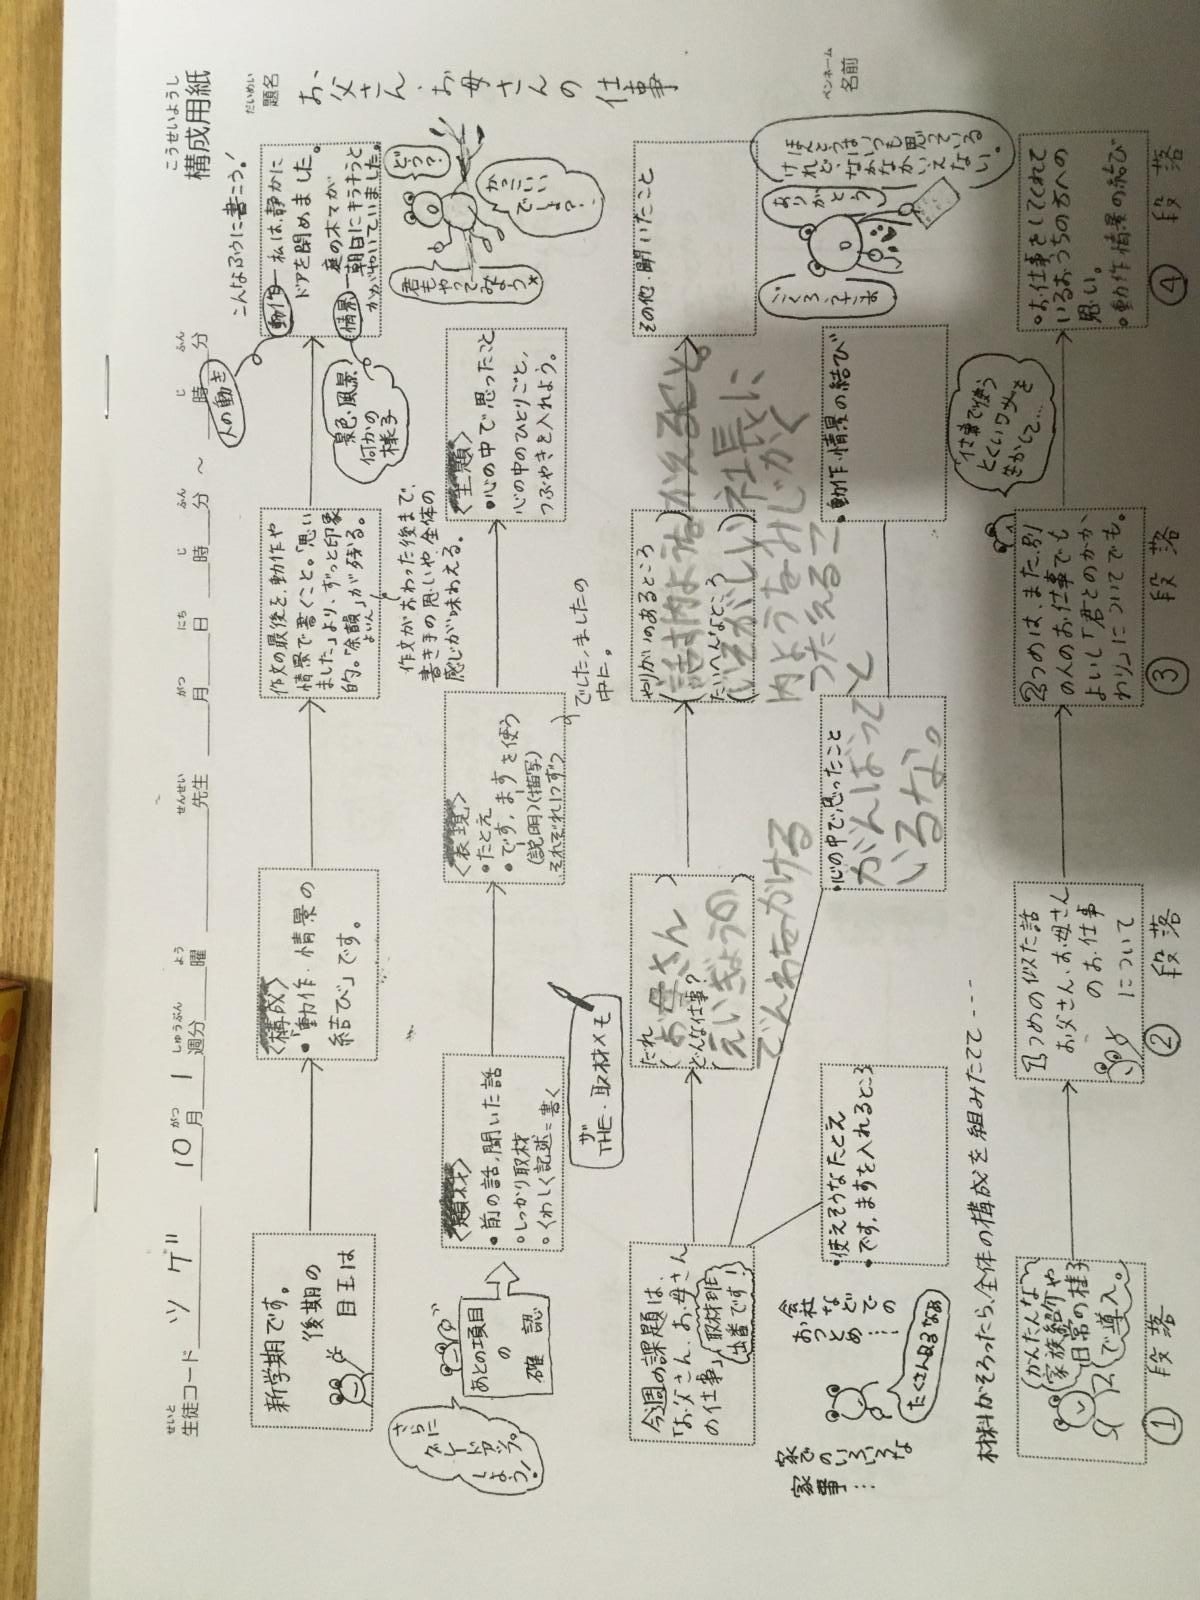 こうせいようし
構成用紙
せいと
生徒コード ツゲ 10月 1週分 曜 先生 月 日 時 分 ～ 時 分
がつ しゅうぶん よう せんせい がつ にち じ ふん じ ふん
だいめい
題名
お父さん・お母さんの仕事
ペンネーム
名前
新学期です。
後期の
目玉は
〈構成〉
・「動作・情景の
結び」です。
作文の最後を、動作や
情景で書くこと。「思い
ました」より、ずっと印象
的。「余韻」が残る。
よいん
作文がおわった後まで、
書き手の思いや、全体の
感じが味わえる。
こんなふうに書こう！
人の動き
動作 私は、静かに
ドアを閉めました。
景色、風景
何かの
様子
情景 庭の木てが
朝日にキラキラと
かがやいていました。
さらに
グレードアップ
しよう！
あとの項目
の
確認
〈題材〉
・前の話、聞いた話
・しっかり取材
・くわしく記述＝書く
〈表現〉
・たとえ
・です、ますを使う
（説明）（描写）
それぞれ1つずつ
でした、ましたの
中に。
〈主題〉
・心の中で思ったこと
心の中のひとりごと、
つぶやきを入れよう。
君もやってみよう
どう？
かっこいい
でしょ？
ザ
THE・取材メモ
今週の課題は、
「お父さん、お母さん
の仕事」
取材班
出番です！
だれ
（お母さん）
どんな仕事？
（えいぎょうの
でんわをかける
やりがいのあるところ
（話す内ようをかえること。）
たいへんなところ
（いそがしい社長に
内ようをみじかく
つたえること
その他・聞いたこと
家でのいろいろな
家事…
会社
などで
おつとめの
……
たくさんあるなあ
・使えそうなたとえ
・です、ますを入れるところ
・心の中で思ったこと
がんばって
いるな。
・動作・情景の結び
ごくろうさま
ありがとう
ほんとうはいつも思っている
けれど、なかなかいえない。
材料がそろったら、全体の構成を組みたてて----
かんたんな
家族紹介や
日常の様子
で導入。
①段落
1つめの似た話
お父さん、お母さん
のお仕事
について
②段落
2つめは、また別
の人のお仕事でも
よいし「君とのかか
わり」についてでも。
③段落
「仕事で使う
とくいワザ」を
生かして…
・お仕事をしてくれて
いるおうちの方への
思い。
・動作・情景の結び
④段落